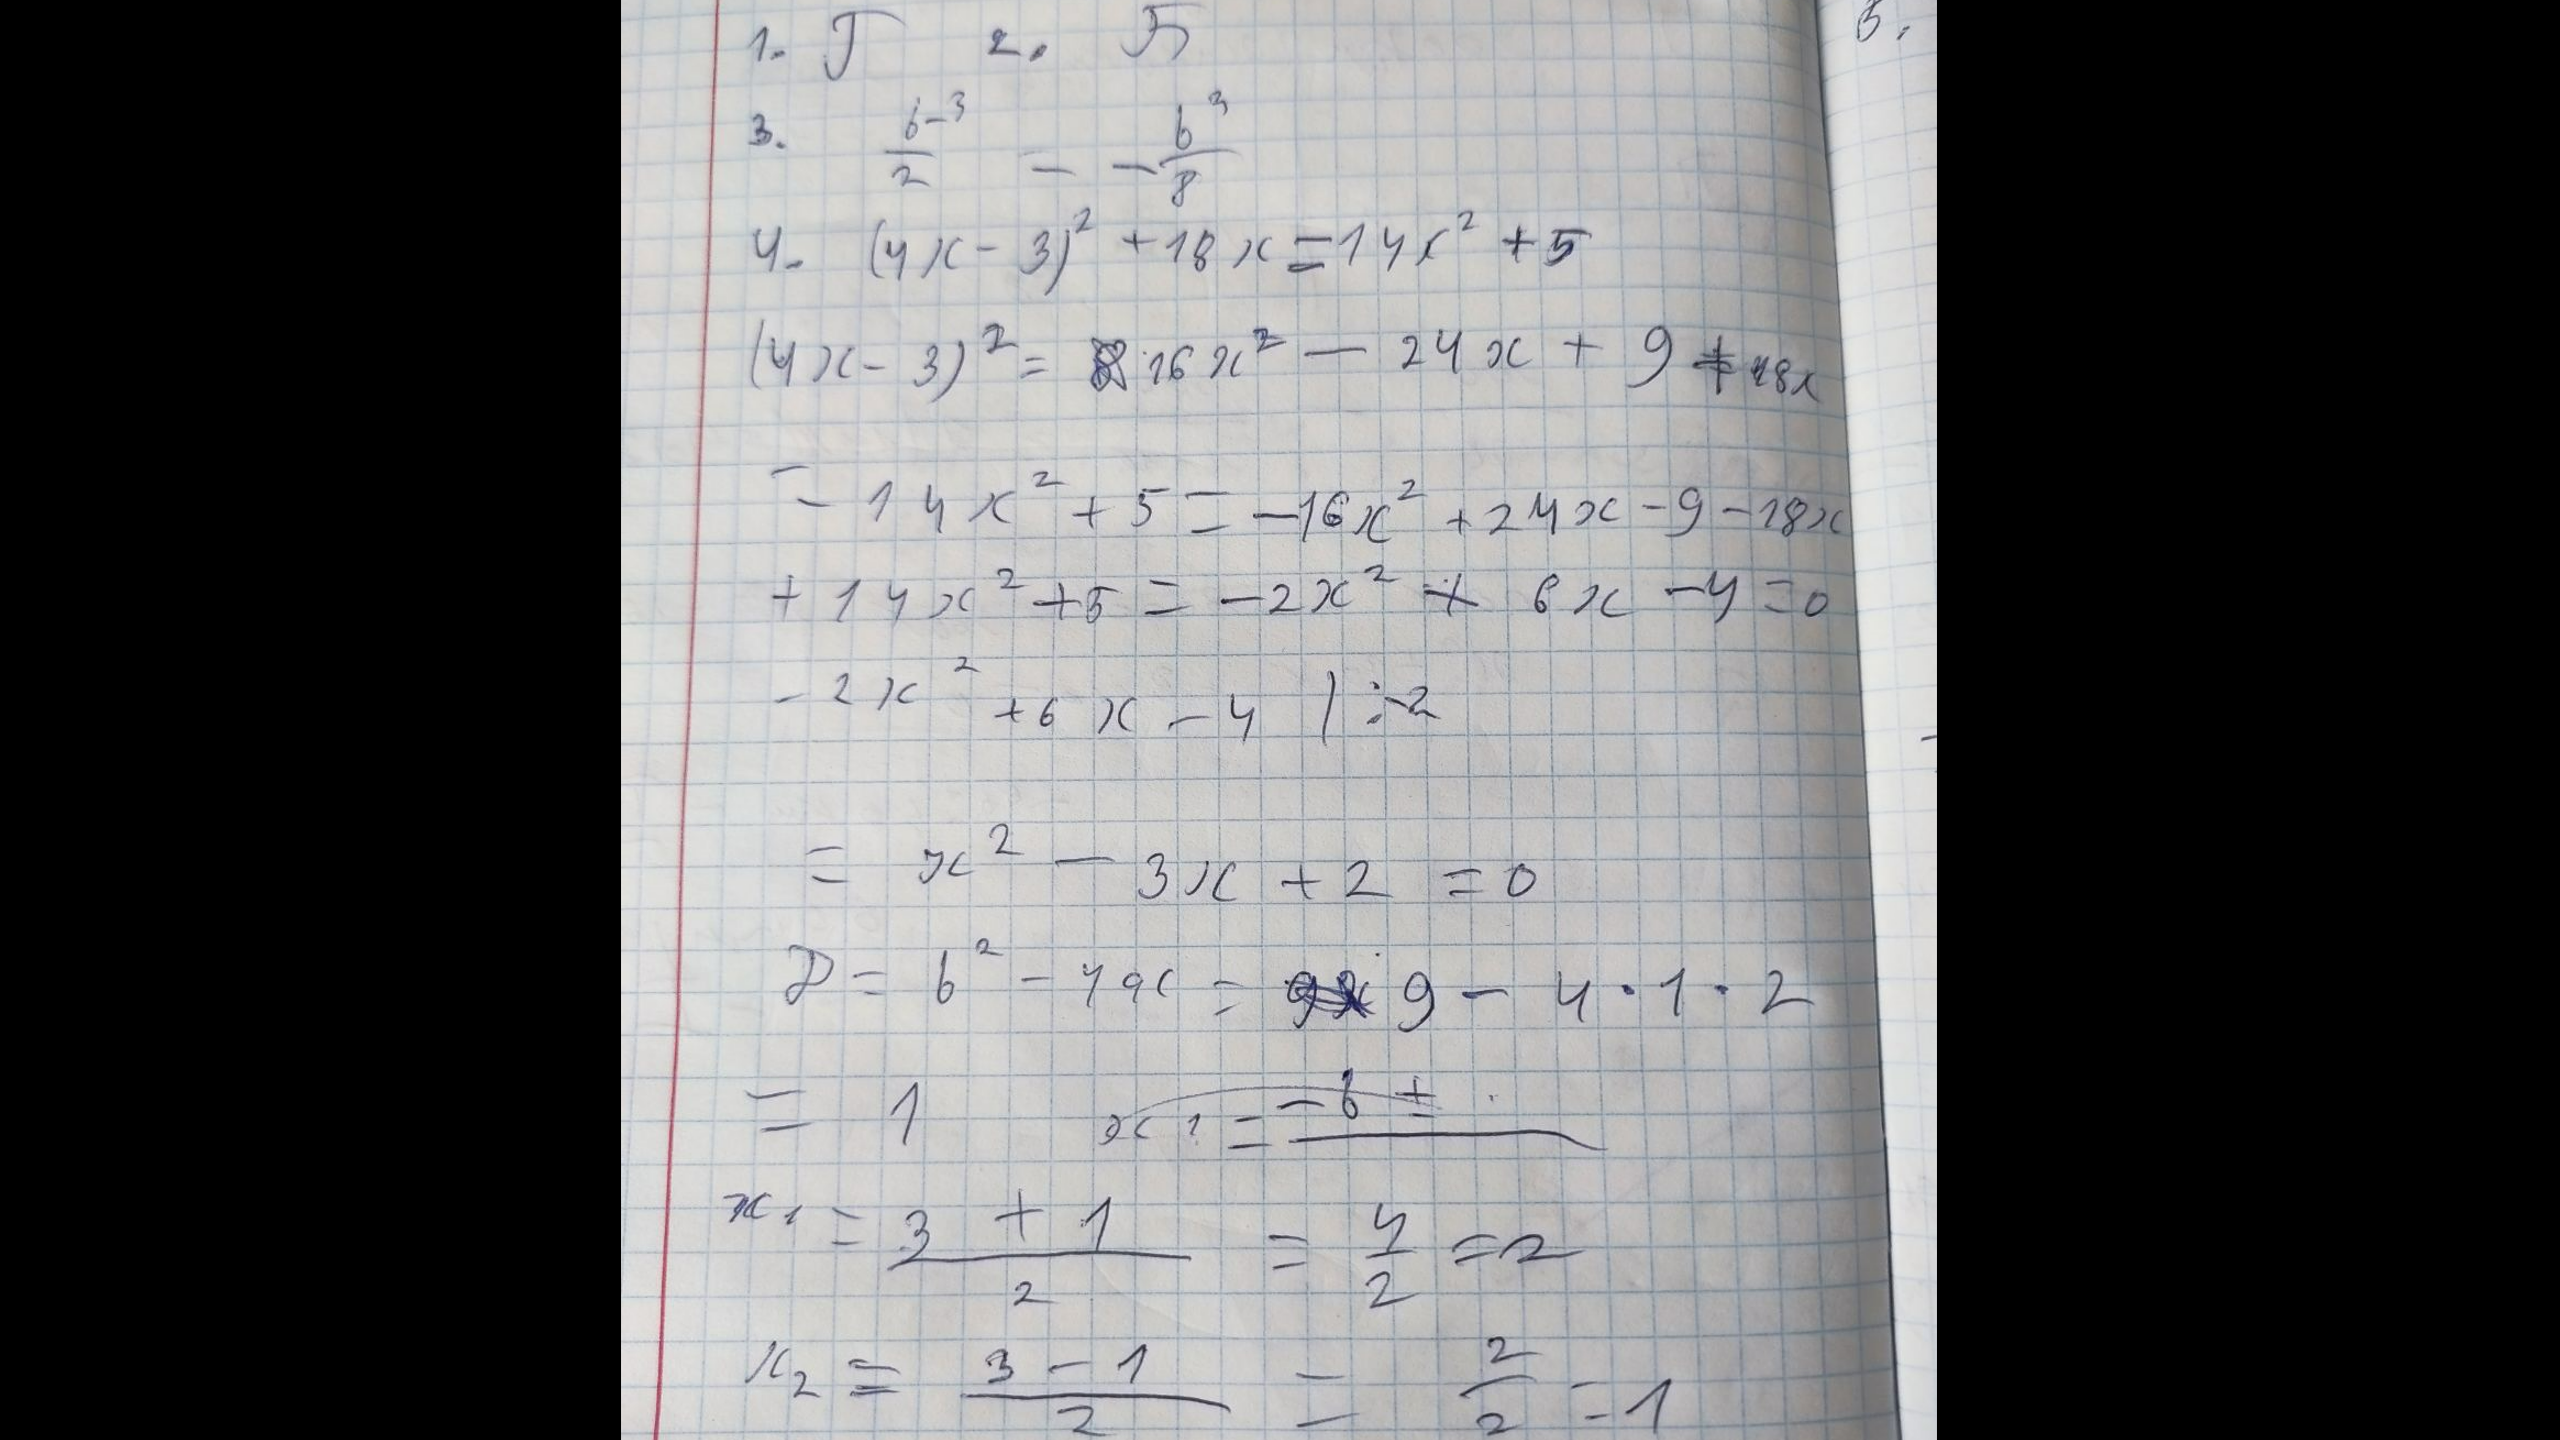 1. Г 2. Б
3. b-3/2 - -b³/8
4. (4x - 3)² + 18x = 14x² + 5
(4x - 3)² = 16x² - 24x + 9 + 18x
= - 14x² + 5 = -16x² + 24x - 9 - 18x
+ 14x² + 5 = -2x² + 6x - 4 = 0
- 2x² + 6x - 4 | : -2
= x² - 3x + 2 = 0
D = b² - 4ac = 9 - 4 · 1 · 2
= 1 x1 = -b ±
x1 = 3 + 1/2 = 4/2 = 2
x2 = 3 - 1/2 = 2/2 = 1